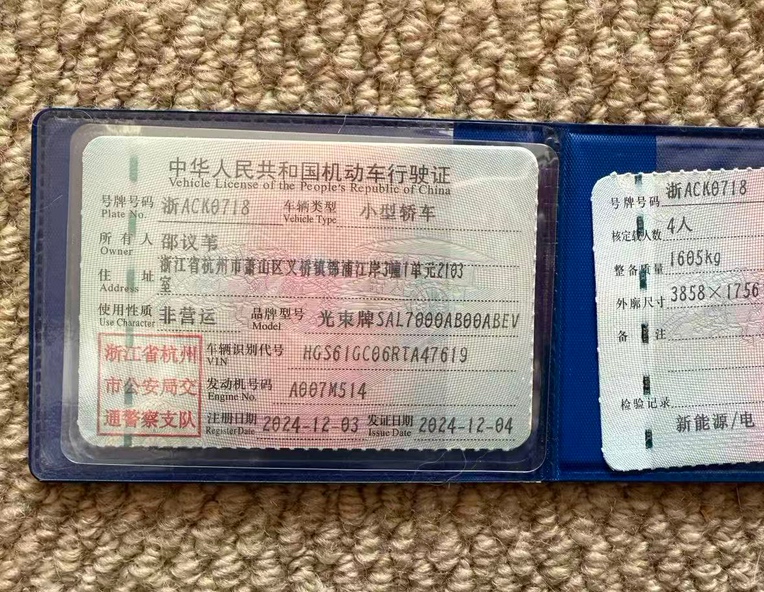 中华人民共和国机动车行驶证
Vehicle License of the People's Republic of China
号牌号码 浙ACK0718 车辆类型 小型轿车
Plate No. Vehicle Type
所有人 邵议苇
Owner
住址 浙江省杭州市萧山区义桥镇锦浦江岸3幢1单元2103室
Address
使用性质 非营运 品牌型号 光束牌SAL7000AB00ABEV
Use Character Model
浙江省杭州
市公安局交
通警察支队
车辆识别代号 HGS61GC06RTA47619
VIN
发动机号码 A007M514
Engine No.
注册日期 2024-12-03 发证日期 2024-12-04
Register Date Issue Date
号牌号码 浙ACK0718
核定载人数 4人
整备质量 1605kg
外廓尺寸 3858×1756
备注
检验记录
新能源/电